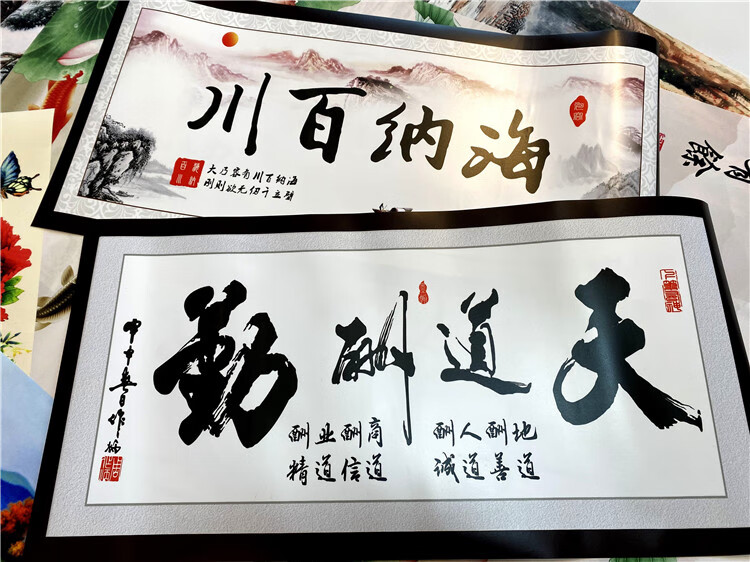 海纳百川
海纳百川有容乃大
壁立千仞无欲则刚
有餘
天道酬勤
地道
酬善
人道
酬诚
商道
酬信
业道
酬精